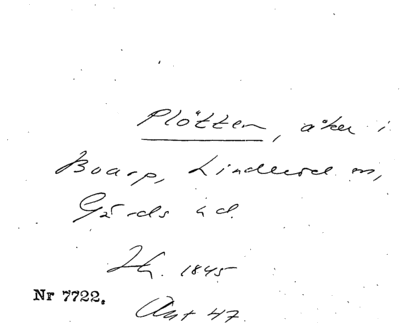 Plötten, åker i
Boarp, Linderöd sn,
Gärds hd.
Sk. 1845
Nr 7722.
Akt 47